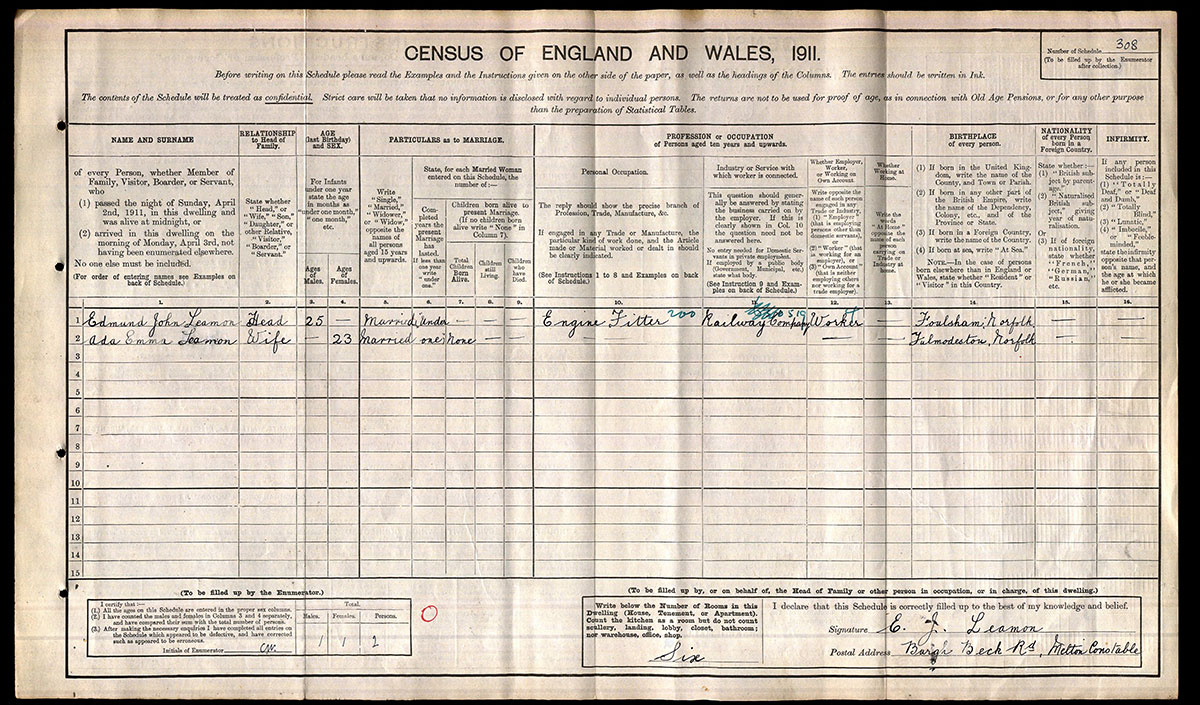 Number of Schedule 308
(To be filled up by the Enumerator
after collection.)
CENSUS OF ENGLAND AND WALES, 1911.
Before writing on this Schedule please read the Examples and the Instructions given on the other side of the paper, as well as the headings of the Columns. The entries should be written in Ink.
The contents of the Schedule will be treated as confidential. Strict care will be taken that no information is disclosed with regard to individual persons. The returns are not to be used for proof of age, as in connection with Old Age Pensions, or for any other purpose
than the preparation of Statistical Tables.
NAME AND SURNAME
of every Person, whether Member of
Family, Visitor, Boarder, or Servant,
who
(1) passed the night of Sunday, April
2nd, 1911, in this dwelling and
was alive at midnight, or
(2) arrived in this dwelling on the
morning of Monday, April 3rd, not
having been enumerated elsewhere.
No one else must be included.
(For order of entering names see Examples on
back of Schedule.)
RELATIONSHIP
to Head of
Family.
State whether
"Head," or
"Wife," "Son,"
"Daughter," or
other Relative,
"Visitor,"
"Boarder," or
"Servant."
AGE
(last Birthday)
and SEX.
For Infants
under one year
state the age
in months as
"under one month,"
"one month,"
etc.
Ages
of
Males.
Ages
of
Females.
PARTICULARS as to MARRIAGE.
Write
"Single,"
"Married,"
"Widower,"
or "Widow,"
opposite the
names of
all persons
aged 15 years
and upwards.
State, for each Married Woman
entered on this Schedule, the
number of:—
Completed
years the
present
Marriage
has
lasted.
If less than
one year
write
"under
one."
Children born alive to
present Marriage.
(If no children born
alive write "None" in
Column 7).
Total
Children
Born
Alive.
Children
still
Living.
Children
who
have
Died.
PROFESSION or OCCUPATION
of Persons aged ten years and upwards.
Personal Occupation.
The reply should show the precise branch of
Profession, Trade, Manufacture, &c.
If engaged in any Trade or Manufacture, the
particular kind of work done, and the Article
made or Material worked or dealt in should
be clearly indicated.
(See Instructions 1 to 8 and Examples on back
of Schedule.)
Industry or Service with
which worker is connected.
This question should generally
be answered by stating
the business carried on
by the employer. If this is
clearly shown in Col. 10
the question need not be
answered here.
No entry needed for Domestic Servants
in private employment.
If employed by a public body
(Government, Municipal, etc.)
state what body.
(See Instruction 9 and Examples
on back of Schedule.)
Whether Employer,
Worker,
or Working on
Own Account
Write opposite the
name of each person
engaged in any
Trade or Industry,
(1) "Employer"
(that is employing
persons other than
domestic servants),
or
(2) "Worker" (that
is working for an
employer), or
(3) "Own Account"
(that is neither
employing others
nor working for a
trade employer).
Whether
Working at
Home.
Write the
words
"At Home"
opposite the
name of each
person
carrying on
Trade or
Industry at
home.
BIRTHPLACE
of every person.
(1) If born in the United Kingdom,
write the name of the
County, and Town or Parish.
(2) If born in any other part of
the British Empire, write
the name of the Dependency,
Colony, etc., and of the
Province or State.
(3) If born in a Foreign Country,
write the name of the Country.
(4) If born at sea, write "At Sea."
NOTE.—In the case of persons
born elsewhere than in England or
Wales, state whether "Resident" or
"Visitor" in this Country.
NATIONALITY
of every Person
born in a
Foreign Country.
State whether:—
(1) "British subject
by parentage."
(2) "Naturalised
British subject,"
giving
year of naturalisation.
Or
(3) If of foreign
nationality,
state whether
"French,"
"German,"
"Russian,"
etc.
INFIRMITY.
If any person
included in this
Schedule is:—
(1) "Totally
Deaf," or "Deaf
and Dumb,"
(2) "Totally
Blind,"
(3) "Lunatic,"
(4) "Imbecile,"
or "Feeble-minded,"
state the infirmity
opposite that person's
name, and
the age at which
he or she became
afflicted.
1. 2. 3. 4. 5. 6. 7. 8. 9. 10. 11. 12. 13. 14. 15. 16.
1 Edmund John Leamon Head 25 — Married Under — — — Engine Fitter 200 Railway Company Worker — Foulsham, Norfolk — —
2 Ada Emma Leamon Wife — 23 Married one None — — — — — — Fulmodeston, Norfolk — —
3
4
5
6
7
8
9
10
11
12
13
14
15
(To be filled up by the Enumerator.)
I certify that:—
(1.) All the ages on this Schedule are entered in the proper sex columns.
(2.) I have counted the males and females in Columns 3 and 4 separately,
and have compared their sum with the total number of persons.
(3.) After making the necessary enquiries I have completed all entries on
the Schedule which appeared to be defective, and have corrected
such as appeared to be erroneous.
Initials of Enumerator
Total.
Males. Females. Persons.
1 1 2
(To be filled up by, or on behalf of, the Head of Family or other person in occupation, or in charge, of this dwelling.)
Write below the Number of Rooms in this
Dwelling (House, Tenement, or Apartment).
Count the kitchen as a room but do not count
scullery, landing, lobby, closet, bathroom;
nor warehouse, office, shop.
Six
I declare that this Schedule is correctly filled up to the best of my knowledge and belief.
Signature E. J. Leamon
Postal Address Beck Rd, Melton Constable